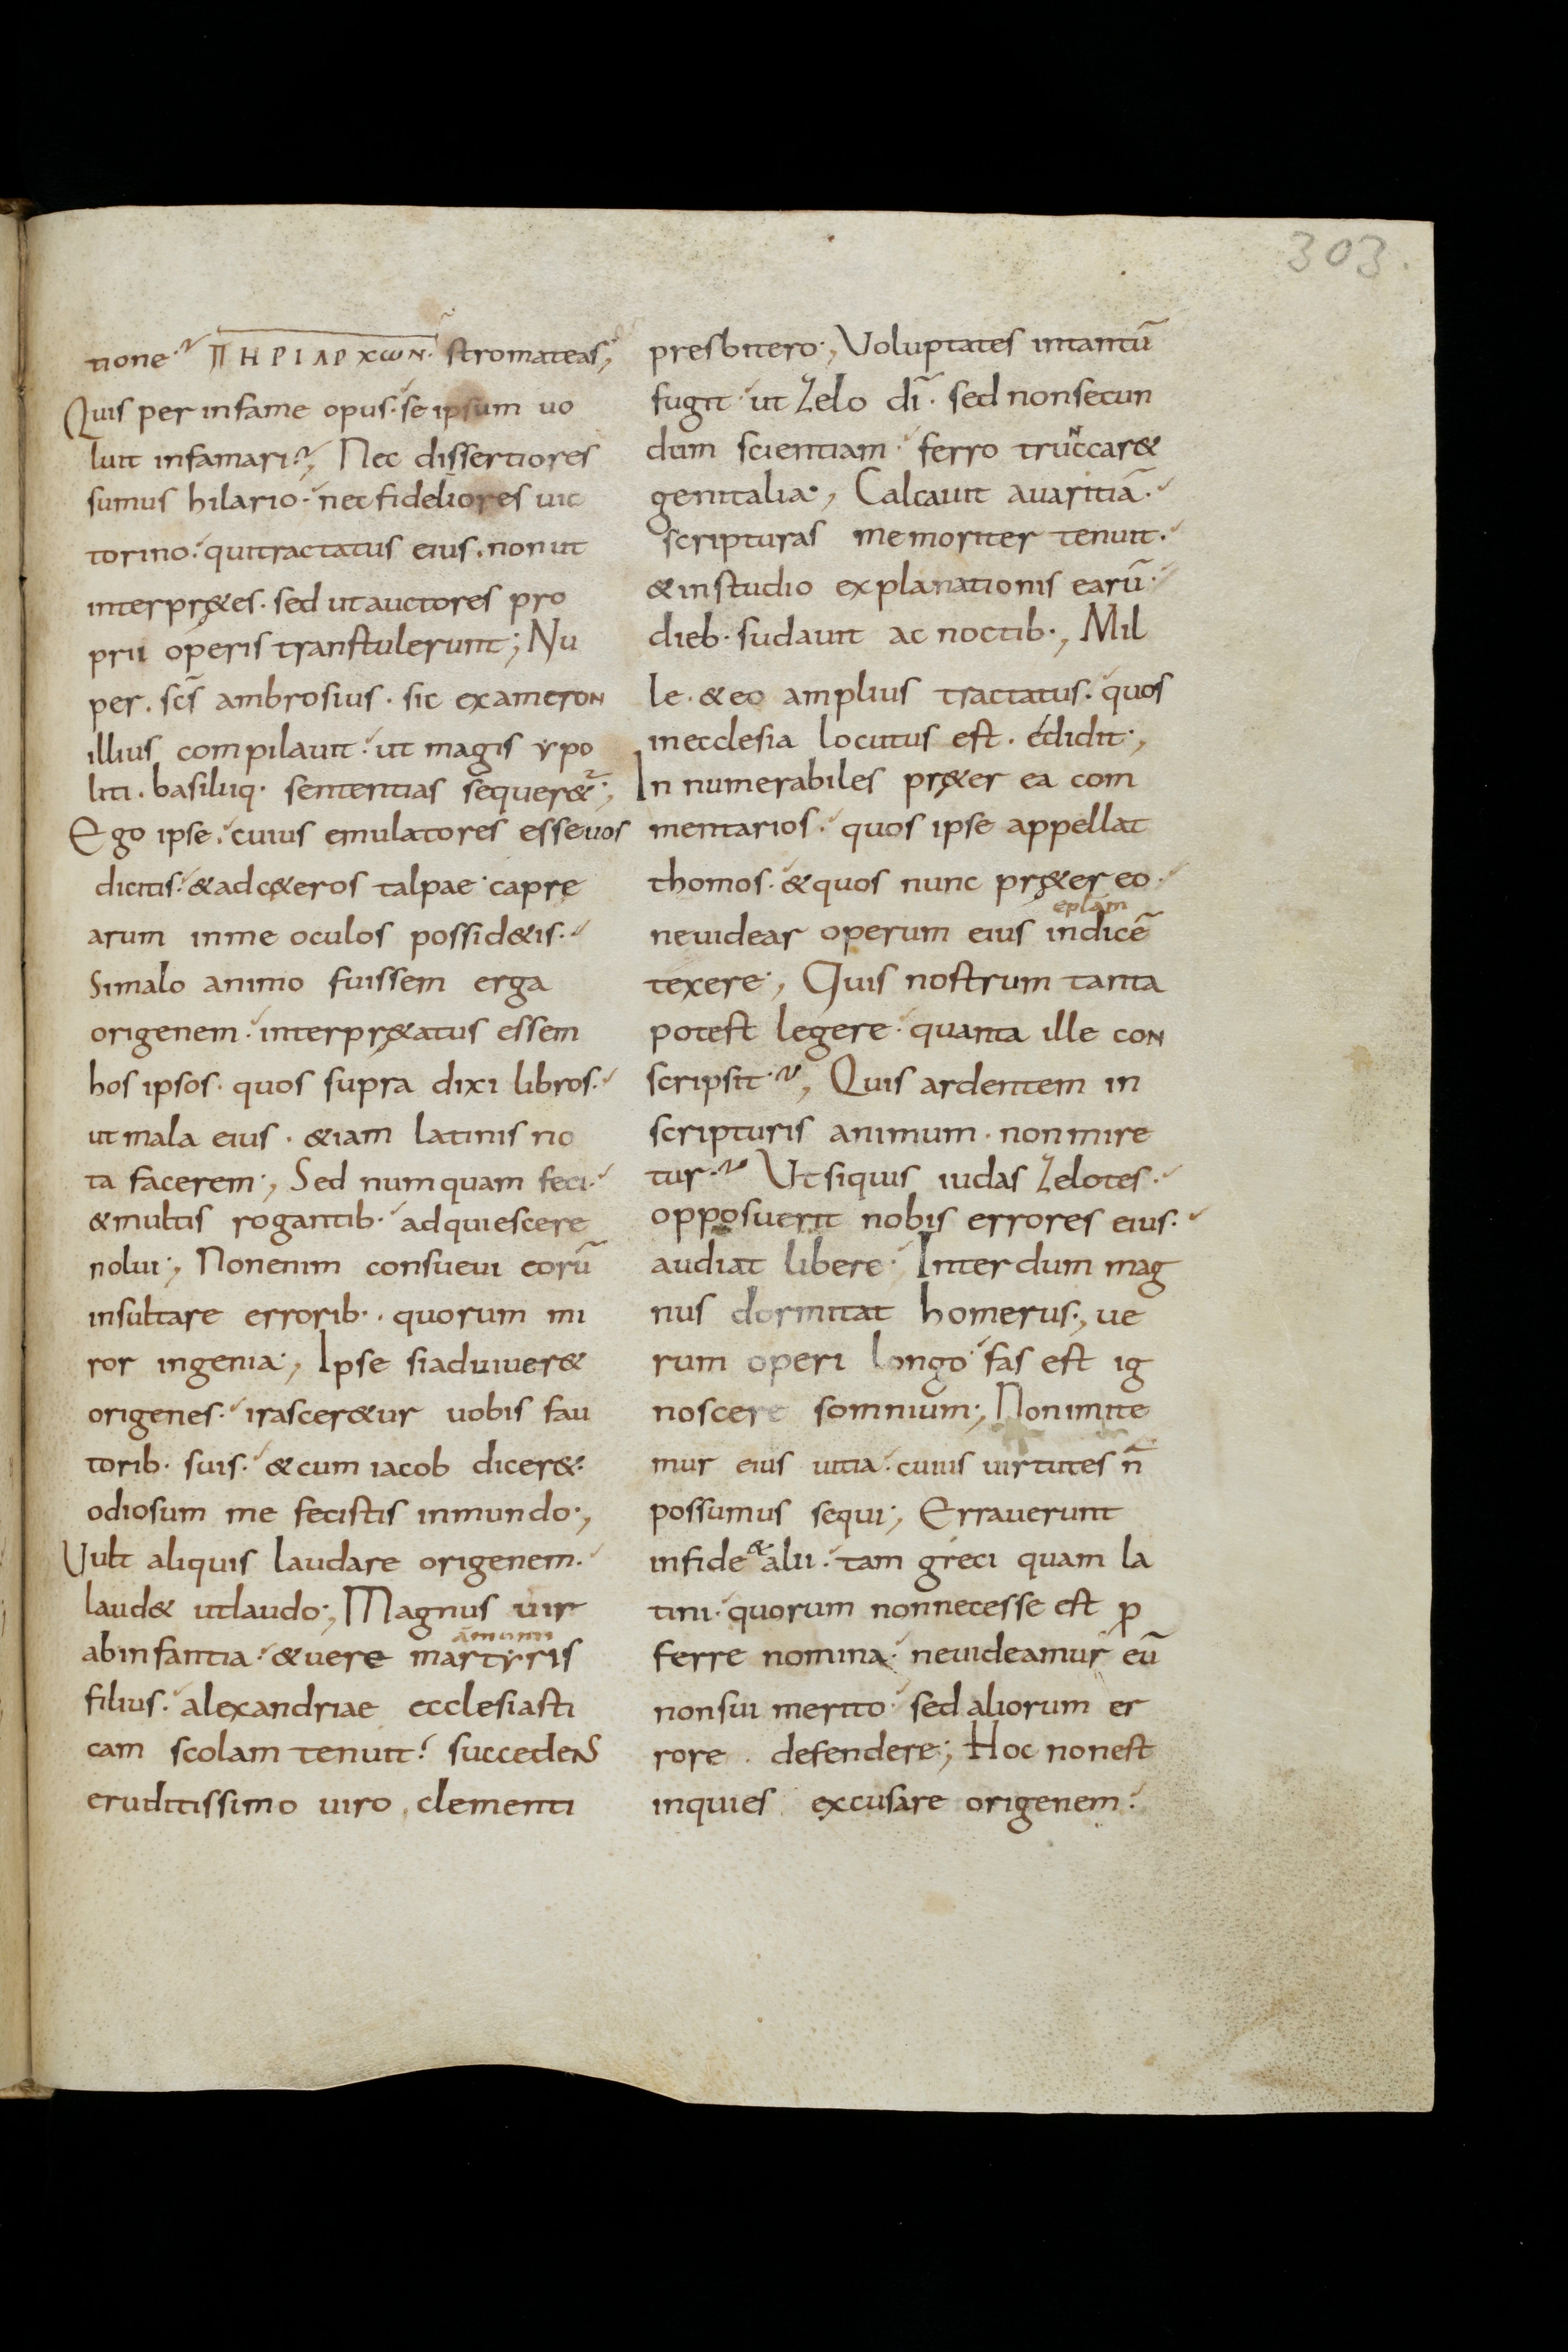 303.
tione. ΠΗΡΙΑΡΧωΝ. stromateas;
Quis per infame opus. se ipsum uo
luit infamari?; Nec dissertiores
sumus hilario. nec fideliores uic
torino. qui tractatus eius. non ut
interpr&es. sed ut auctores pro
prii operis transtulerunt; Nu
per. scs̄ ambrosius. sic exameron
illius compilauit. ut magis ypo
liti. basiliiq. sententias sequer&;
Ego ipse. cuius emulatores esse uos
dicitis. & ad c&eros talpae. capre
arum in me oculos possid&is.
Si malo animo fuissem erga
origenem. interpr&atus essem
hos ipsos. quos supra dixi libros.
ut mala eius. &iam latinis no
ta facerem; Sed numquam feci.
& multis rogantib. adquiescere
nolui; Non enim consueui eorū
insultare errorib. quorum mi
ror ingenia; Ipse si aduiuer&
origenes. irascer&ur uobis fau
torib. suis. & cum iacob dicer&.
odiosum me fecistis in mundo;
Vult aliquis laudare origenem.
laud& ut laudo; Magnus uir
ab infantia. & uere martyris
filius. alexandriae ecclesiasti
cam scolam tenuit. succedens
eruditissimo uiro clementi
presbitero; Voluptates in tantū
fugit. ut zelo dī. sed non secun
dum scientiam. ferro truncar&
genitalia; Calcauit auaritiā.
scripturas memoriter tenuit.
& in studio explanationis earū.
dieb. sudauit ac noctib.; Mil
le. & eo amplius tractatus. quos
in ecclesia locutus est. edidit;
In numerabiles pr&er ea com
mentarios. quos ipse appellat
thomos. & quos nunc pr&ereo.
ne uidear operum eius indicē
texere; Quis nostrum tanta
potest legere. quanta ille con
scripsit; Quis ardentem in
scripturis animum. non mire
tur. Ut si quis iudas zelotes.
opposuerit nobis errores eius.
audiat libere. Interdum mag
nus dormitat homerus; ue
rum operi longo. fas est ig
noscere somnium; Non imite
mur eius uitia. cuius uirtutes n̄
possumus sequi; Errauerunt
in fide & alii. tam greci quam la
tini. quorum non necesse est ꝓ
ferre nomina. ne uideamur eū
non sui merito. sed aliorum er
rore. defendere; Hoc non est
inquies excusare origenem.